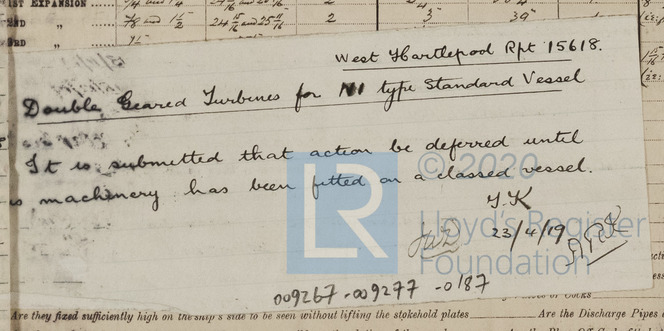 1ST EXPANSION
2ND " 7/8 and 1 1/2 24 15/16 and 25 11/16 2 3" 39"
3RD "
West Hartlepool Rpt 15618.
Double Geared Turbines for N1 type Standard Vessel
It is submitted that action be deferred until
machinery has been fitted on a classed vessel.
© 2020
LR
Lloyd's Register
Foundation
J.K
23/4/19
009267-009277-0187
Are they fixed sufficiently high on the ship's side to be seen without lifting the stokehold plates
Are the Discharge Pipes